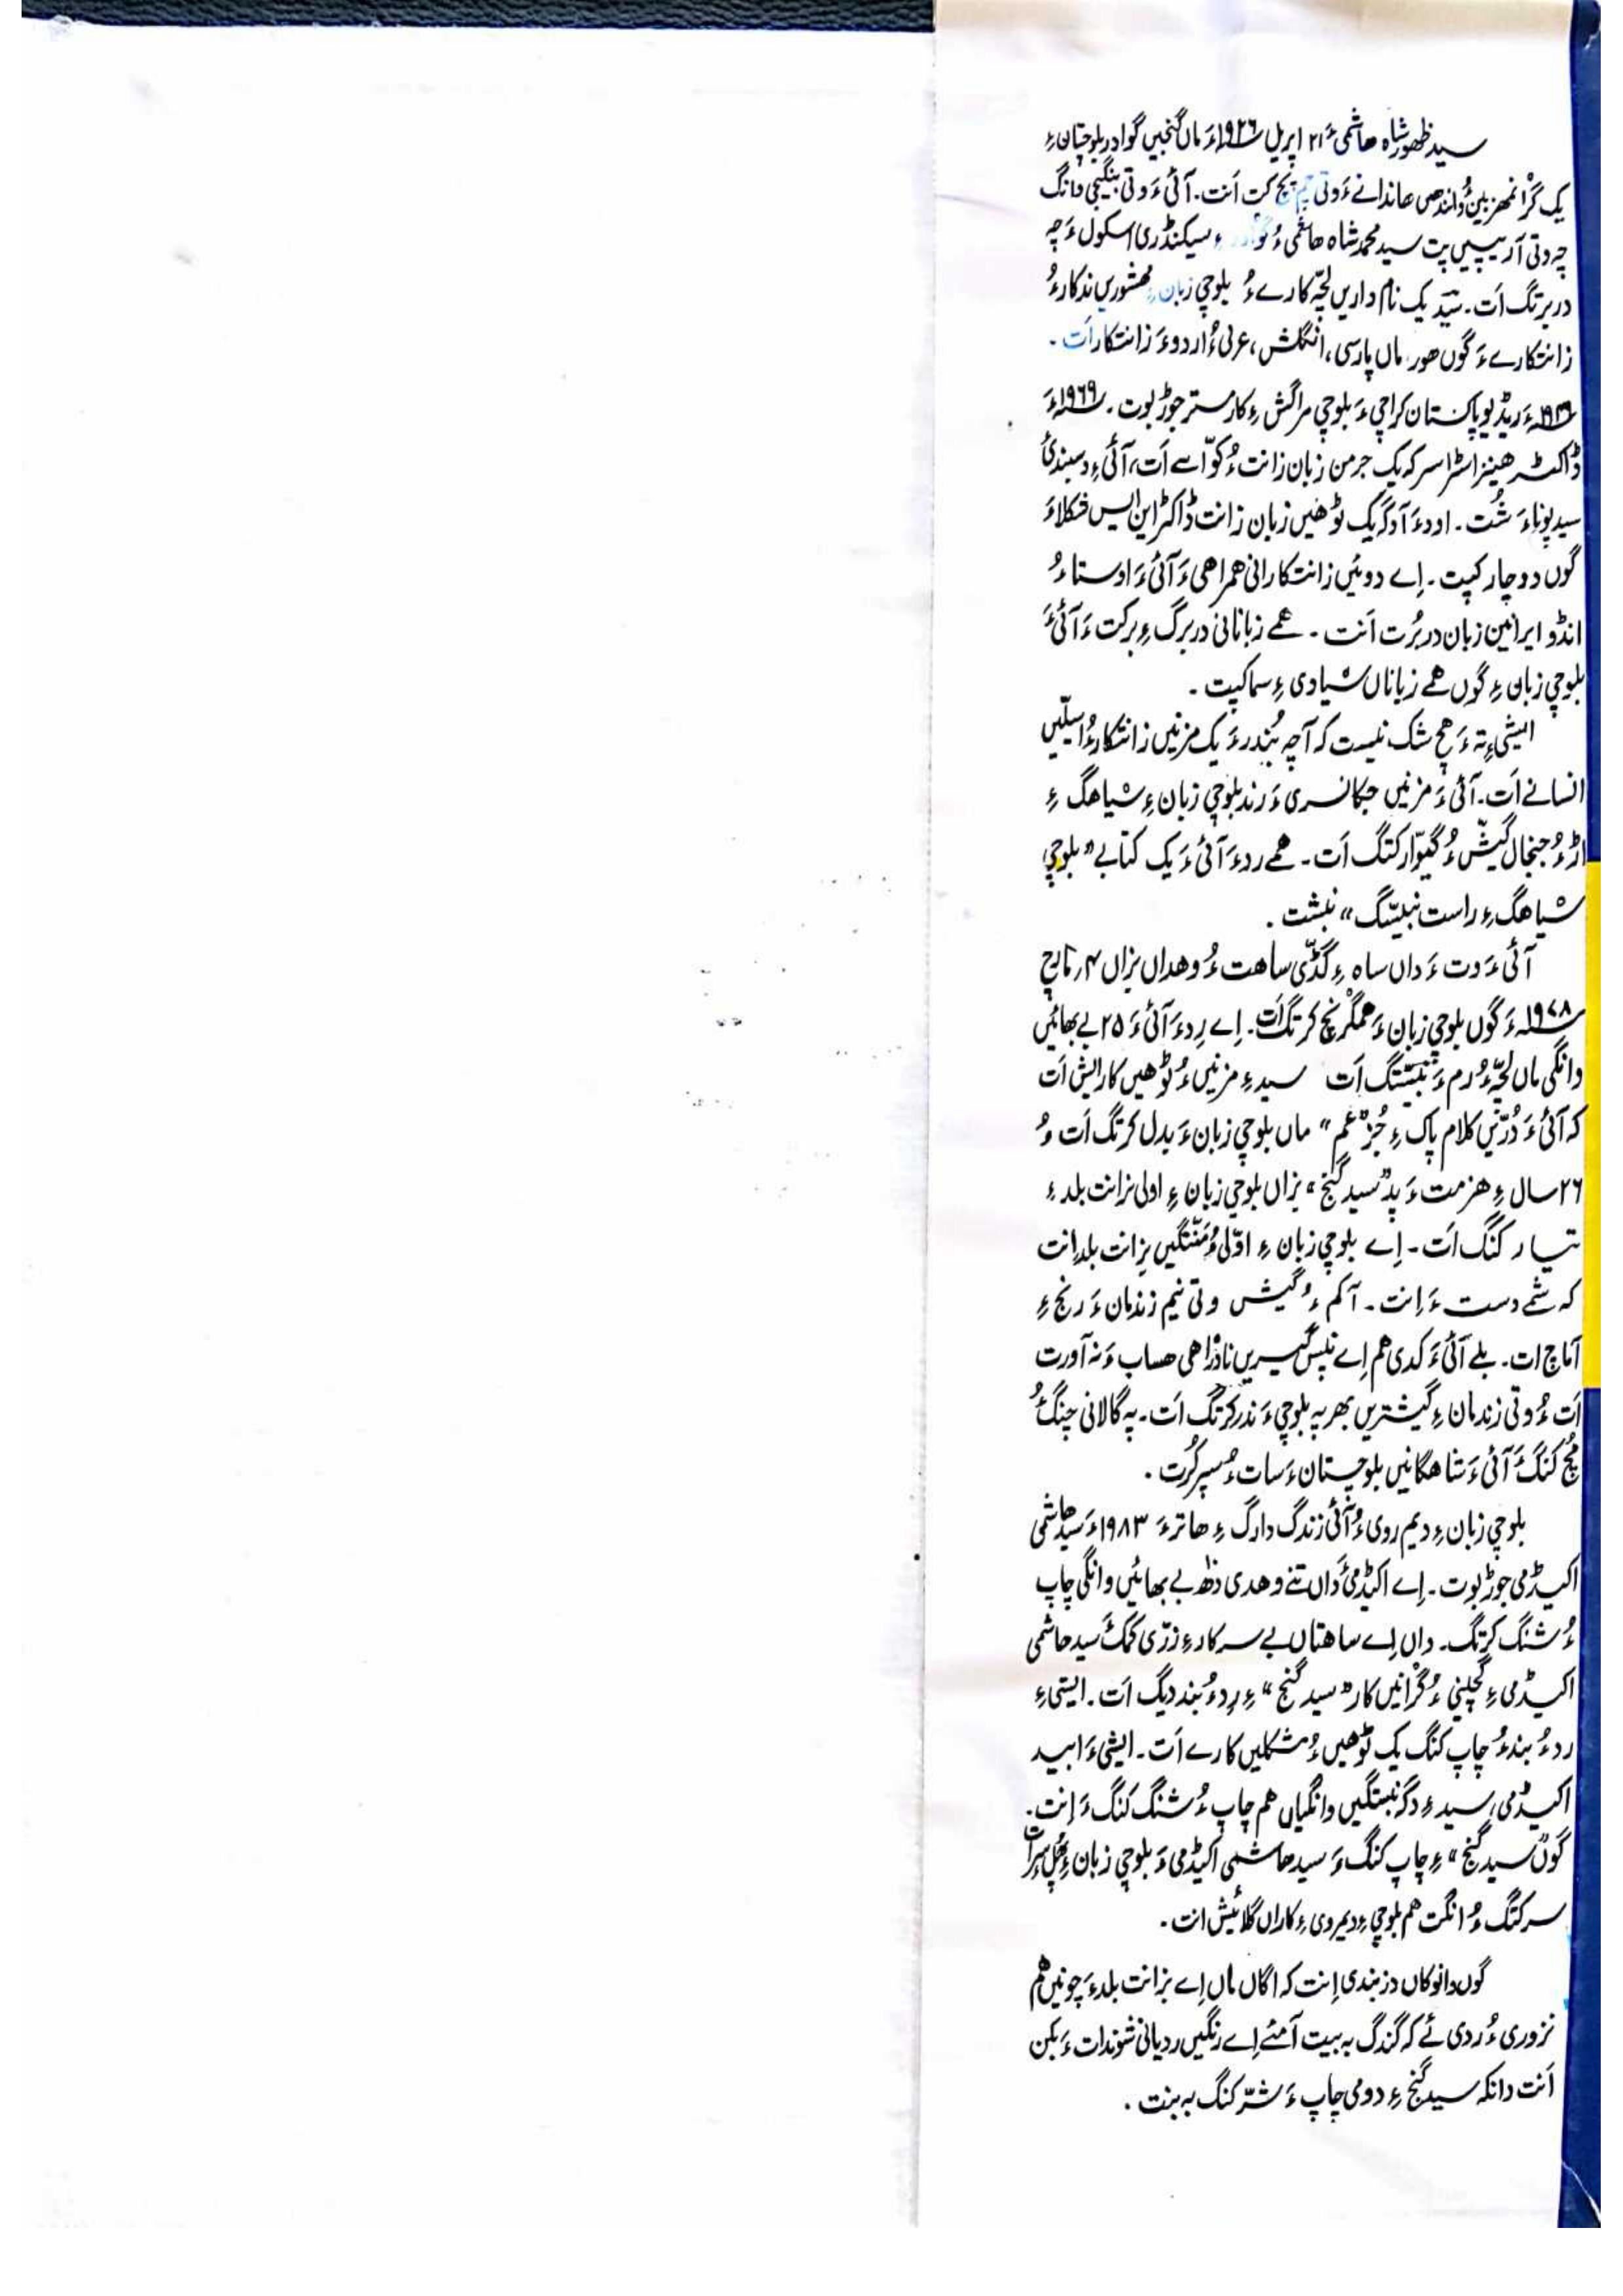 سید ظهور شاه هاشمی ءَ ۲۱ اپریل ۱۹۲۶ءَ ماں گنجیں گوادر بلوچستان ءِ
یک گرانمهزیں ءُ دانندهی هاندانے ءَ وتی چم پچ کت اَنت۔ آئی ءَ وتی بنگیجی وانگ
چه وتی آریپیں پت سید محمد شاه هاشمی ءُ گوادر ءِ سیکنڈری اسکول ءَ چه
دربرتگ اَت۔ سیّد یک نام داریں لچّه کارے ءُ بلوچی زبان ءِ مهشوریں ندکار ءُ
زانتکارے ءَ گوں هور ماں پارسی، انگلش، عربی ءُ اردو ءَ زانتکار اَت۔
ءَ ریڈیو پاکستان کراچی ءَ بلوچی مراگش ءِ کارمستر جوڑ بوت۔ ۱۹۶۹ءَ
ڈاکٹر هینز اسٹراسر که یک جرمن زبان زانت ءُ کوّاسے اَت، آئی ءِ دسبندیٔ
سید پونا ءَ شُت۔ اودءَ آدگه یک ٹوهیں زبان زانت ڈاکٹر این ایس شکلا ءَ
گوں دوچار کپت۔ اِے دوئیں زانتکارانی همراهی ءَ آئی ءَ اوستا ءُ
انڈو ایرانین زبان دربُرت اَنت۔ همے زبانانی دربرگ ءِ برکت ءَ آئی ءَ
بلوچی زبان ءِ گوں همے زباناں سیادی ءِ سما کپت۔
ایشی ءِ ته ءَ هچ شک نیست که آ چه بُندرءَ یک مزنیں زانتکار ءُ اسلّیں
انسانے اَت۔ آئی ءَ مزنیں جکانسری ءَ رند بلوچی زبان ءِ سیاهگ ءِ
اڑ ءُ جنجال گیشّ ءُ گیوّار کتگ اَت۔ همے ردءَ آئی ءَ یک کتابے "بلوچی
سیاهگ ءِ راست نبیسّگ" نبشت۔
آئی ءَ وت ءَ داں ساه ءِ گڈّی ساهت ءُ وهداں بزاں ۴ مارچ
۱۹۷۸ءَ گوں بلوچی زبان ءَ همگرنچ کرتگ اَت۔ اِے رِدءَ آئی ءَ ۲۵ بے بهائیں
وانگی ماں لچّه ءُ رم ءَ نبشتگ اَت سید ءِ مزنیں ءُ ٹوهیں کار ایش اَت
که آئی ءَ دُرّیں کلام پاک ءِ جُز "عم" ماں بلوچی زبان ءَ بدل کرتگ اَت ءُ
۲۶ سال ءِ هزمت ءَ پد "سید گنج" بزاں بلوچی زبان ءِ اولی بزانت بلد ءِ
تیار کنگ اَت۔ اِے بلوچی زبان ءِ اوّلی ءُ مَنّتگیں بزانت بلد اِنت
که شمے دست ءَ اِنت۔ آ کم ءُ گیش وتی نیم زندمان ءَ رنج ءِ
آماچ اَت۔ بلے آئی ءَ کدی هم اِے نپس گیریں نادراهی هساب ءَ نه آورت
اَت ءُ وتی زندمان ءِ گیشتریں بهر په بلوچی ءَ ندر کرتگ اَت۔ په گالانی چنگ ءُ
مُچ کنگ ءَ آئی ءَ شاهگانیں بلوچستان ءَ سات ءُ سپر کُرت۔
بلوچی زبان ءِ دیم روی ءُ آئی زندگ دارگ ءِ هاترءَ ۱۹۸۳ءَ سید هاشمی
اکیڈمی جوڑ بوت۔ اِے اکیڈمی ءَ داں تنے وهدی ده بے بهائیں وانگی چاپ
ءُ شنگ کرتگ۔ داں اِے ساهتاں بے سرکار ءِ زرّی کمک ءَ سید هاشمی
اکیڈمی ءِ گچینی ءُ گرانیں کار "سید گنج" ءِ رِد ءُ بند دیگ اَت۔ ایشی ءِ
رد ءُ بند ءُ چاپ کنگ یک ٹوهیں ءُ مشکلیں کارے اَت۔ ایشی ءَ ابید
اکیڈمی، سید ءِ دگر نبشتگیں وانگیاں هم چاپ ءُ شنگ کنگ ءَ اِنت۔
گوں "سید گنج" ءِ چاپ کنگ ءَ سید هاشمی اکیڈمی ءَ بلوچی زبان ءِ
سر کتگ ءُ انگت هم بلوچی ءِ دیمروی ءِ کاراں گلائیش انت۔
گوں وانوکاں دزبندی اِنت که اگاں ماں اِے بزانت بلد ءَ چونیں هم
نزوری ءُ ردی ئے که گندگ به بیت آ مئے اِے رنگیں ردیانی شوندات ءَ بکن
اَنت دانکه سید گنج ءِ دومی چاپ ءَ شرّ کنگ به بنت۔